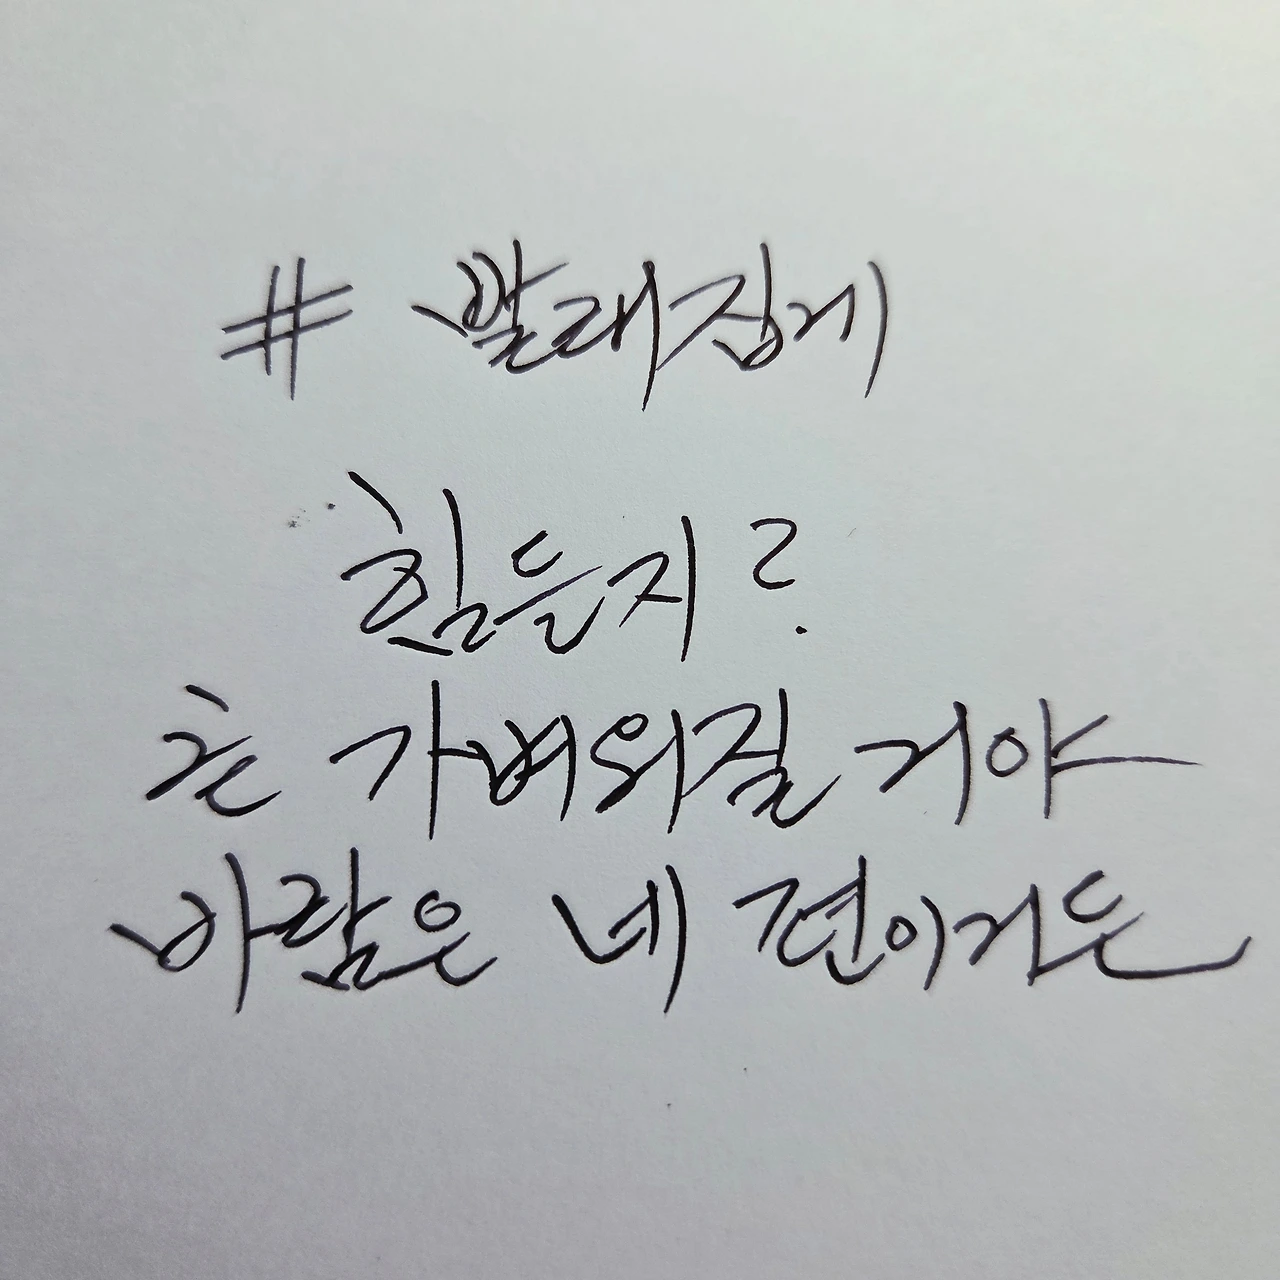 # 빨래집게
힘든지?
곧 가벼워질 거야
바람은 네 편이거든